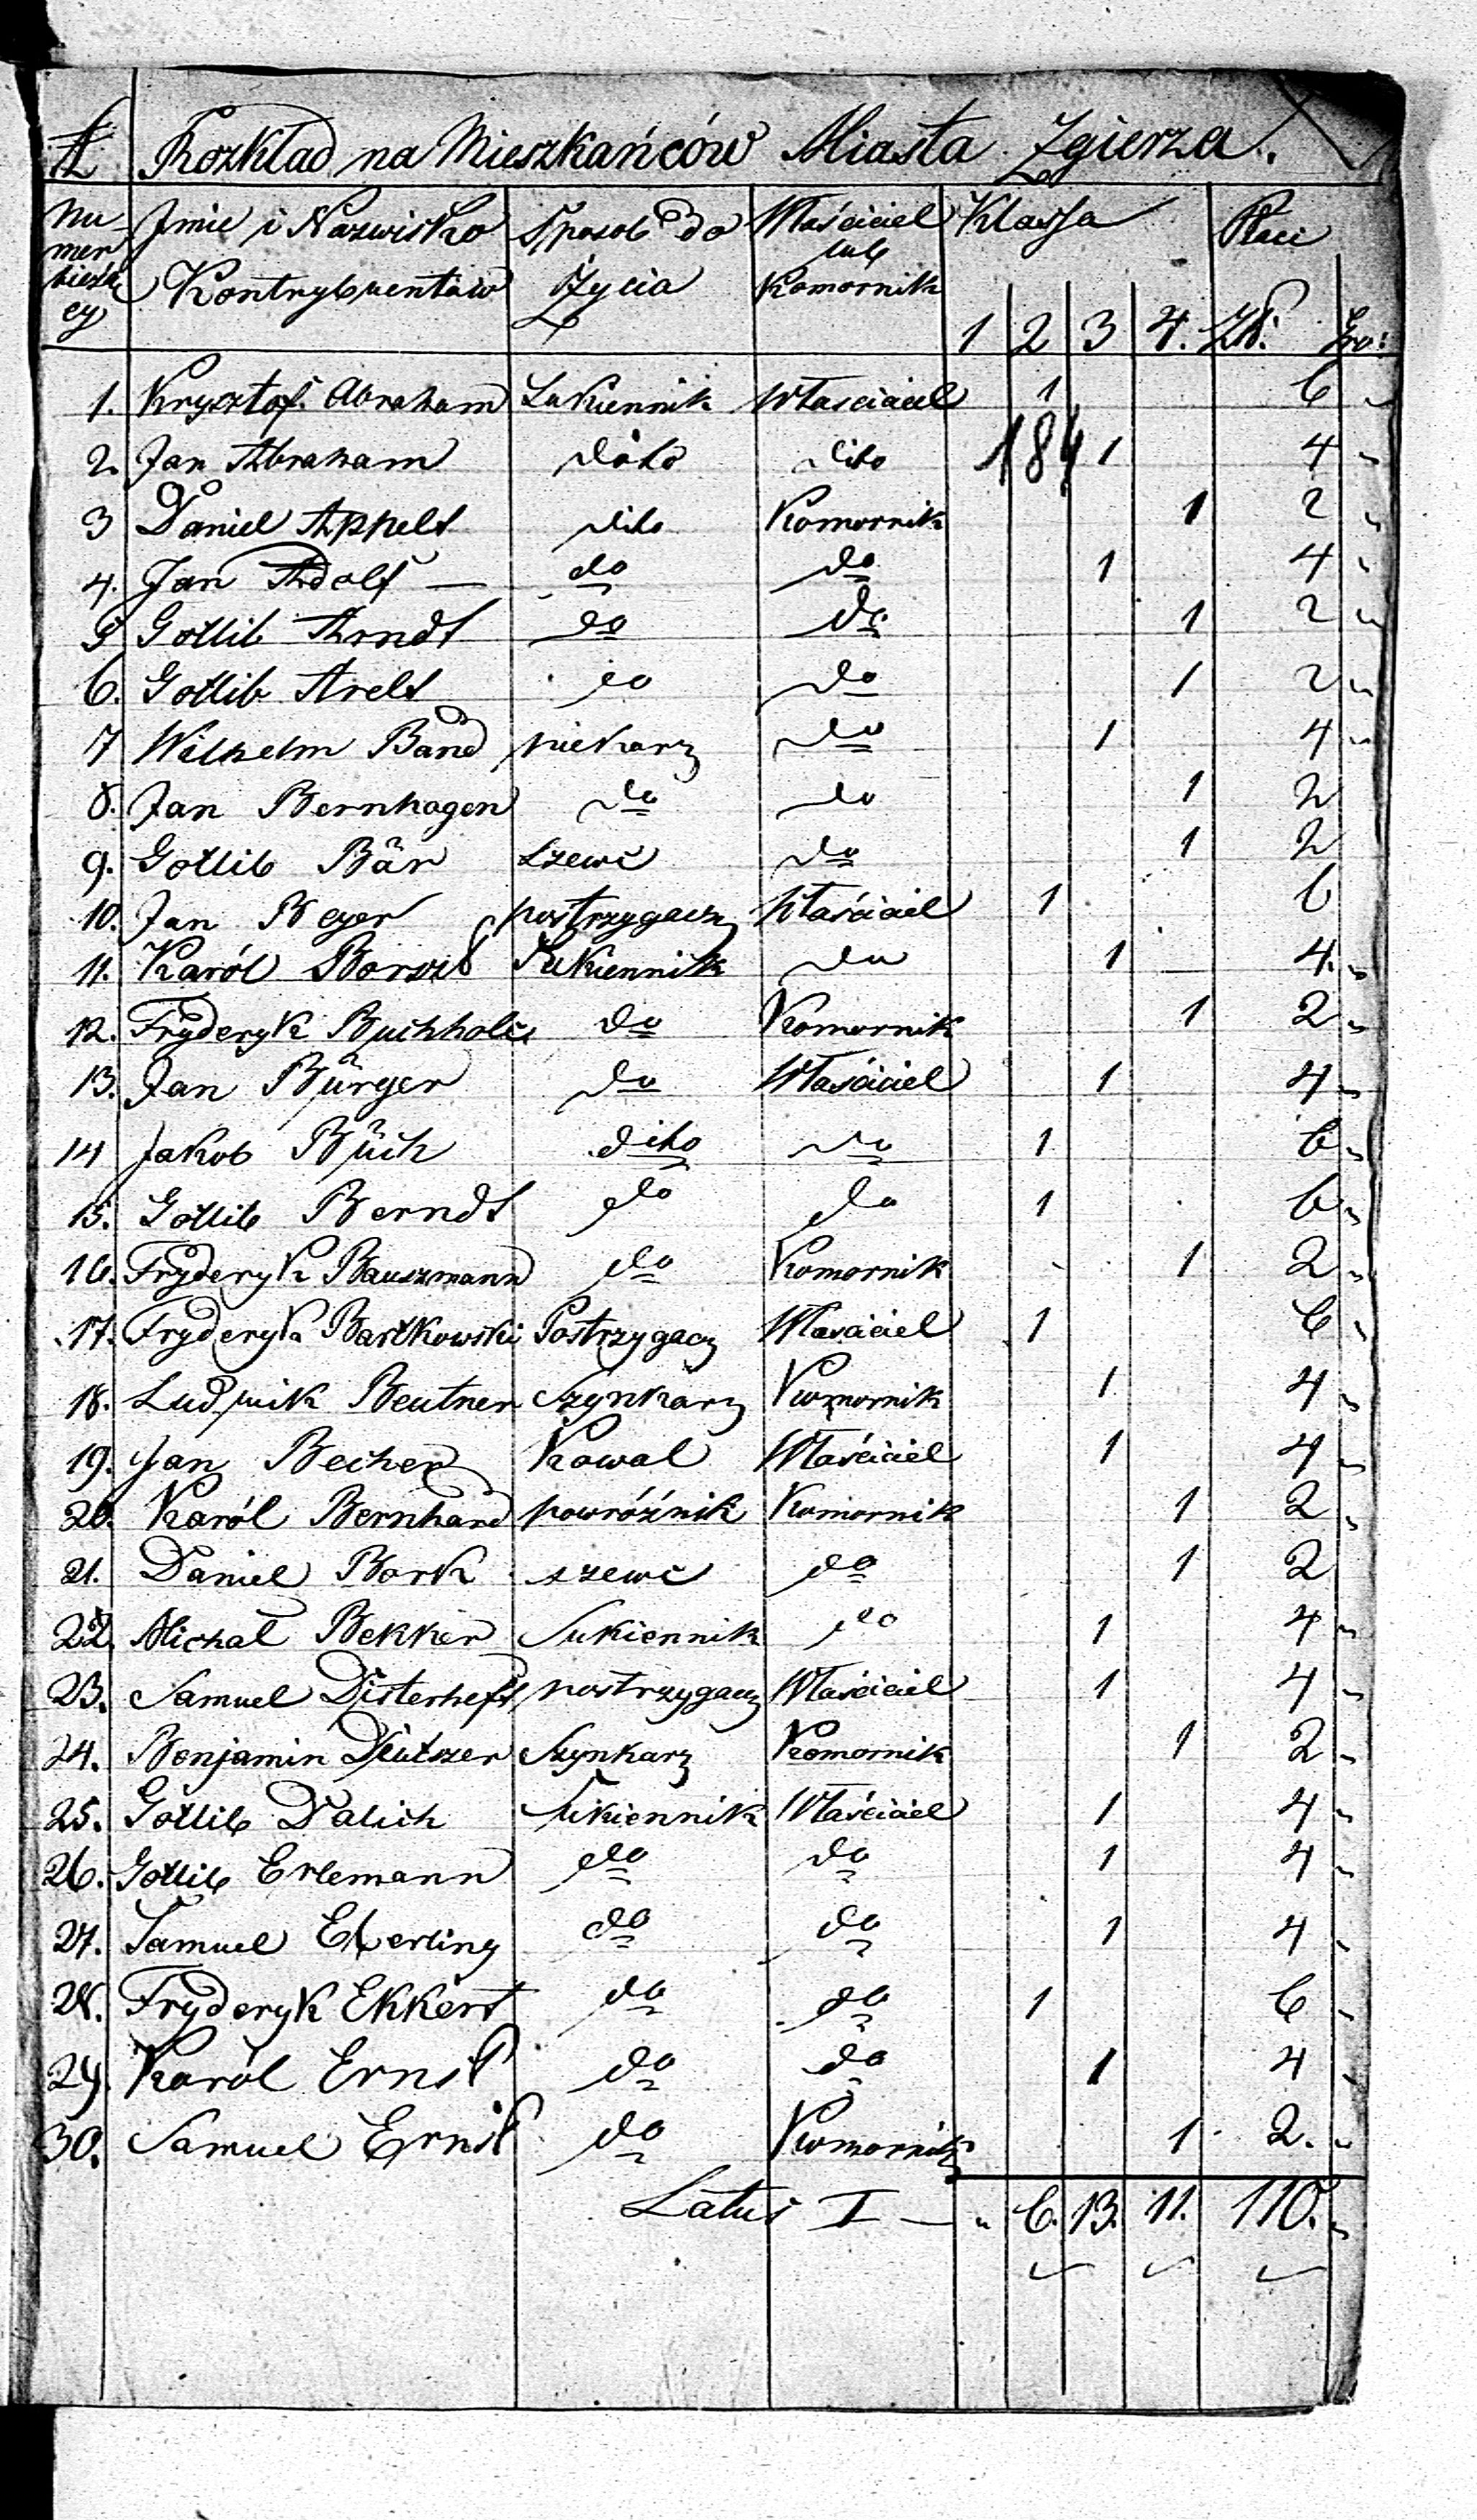 A. Rozkład na Mieszkańców Miasta Zgierza.
Numer bieżący Jmie i Nazwisko Kontrybuentów Sposob do Życia Właściciel lub Komornik Klassa 1 2 3 4. Płaci Zł: Gr:
1. Krysztof Abraham Sukiennik Właściciel 1 6 „
2. Jan Abraham dito dito 184 1 4 „
3 Daniel Appelt dito Komornik 1 2 „
4. Jan Adolf — do do 1 4 „
5 Gottlib Arndt do do 1 2 „
6. Gottlib Arelt do do 1 2 „
7 Wilhelm Band piekarz do 1 4 „
8. Jan Bernhagen do do 1 2
9. Gottlib Bär Szewc do 1 2
10. Jan Beyer postrzygacz Właściciel 1 6
11. Karól Borszt Sukiennik do 1 4. „
12. Fryderyk Buchholc do Komornik 1 2 „
13. Jan Bürger do Właściciel 1 4 „
14 Jakob Büch dito do 1 6 „
15. Gottlib Berndt do do 1 6 „
16. Fryderyk Bauszmann do Komornik 1 2 „
17. Fryderyk Bartkowski Postrzygacz Właściciel 1 6 „
18. Ludwik Beutner Szynkarz Komornik 1 4 „
19. Jan Becher Kowal Właściciel 1 4 „
20. Karól Bernhard powróźnik Komornik 1 2 „
21. Daniel Bork szewc do 1 2
22. Michał Bekker Sukiennik do 1 4 „
23. Samuel Disterheft postrzygacz Właściciel 1 4 „
24. Benjamin Deutszer Szynkarz Komornik 1 2 „
25. Gottlib Dalich Sukiennik Właściciel 1 4 „
26. Gottlib Erlemann do do 1 4 „
27. Samuel Eberling do do 1 4 „
28. Fryderyk Ekkert do do 1 6 „
29. Karól Ernst do do 1 4 „
30. Samuel Ernst do Komornik 1 2. „
Latus I — „ 6. 13. 11. 110. „